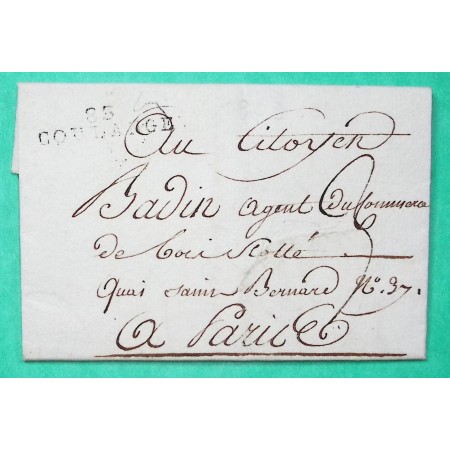 83
COULANGE
Au Citoyen
Badin agent du Commerce
de bois flotté
quai saint Bernard N.º 37.
a Paris